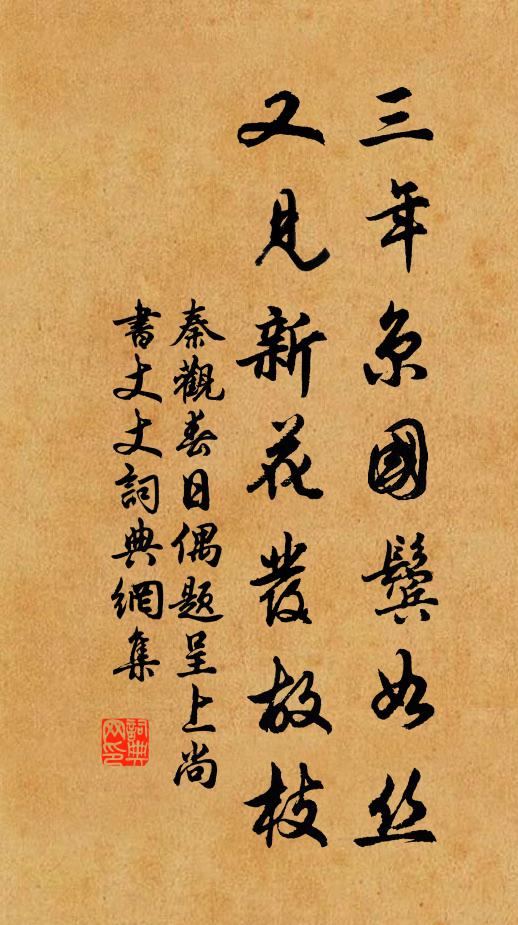 三年京國鬢如丝
又見新花發故枝
秦觀春日偶题呈上尚
書丈丈詞典網集
詞典網印